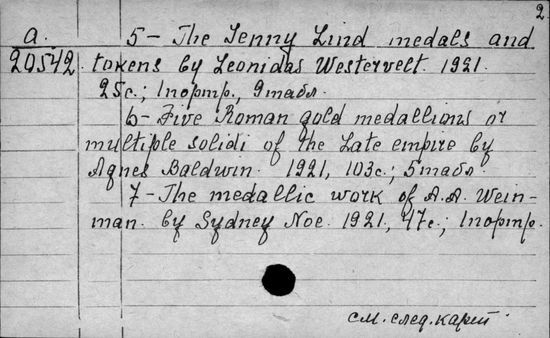 2
a. 5 - The Jenny Lind medals and
20542. tokens by Leonidas Westervelt. 1921.
25с.; 1портр., 9табл.
6 - Five Roman gold medallions or
multiple solidi of the Late empire by
Agnes Baldwin. 1921, 103с.; 5табл.
7 - The medallic work of A.A. Wein-
man. by Sydney Noe. 1921, 47с.; 1портр.
см. след. карт.